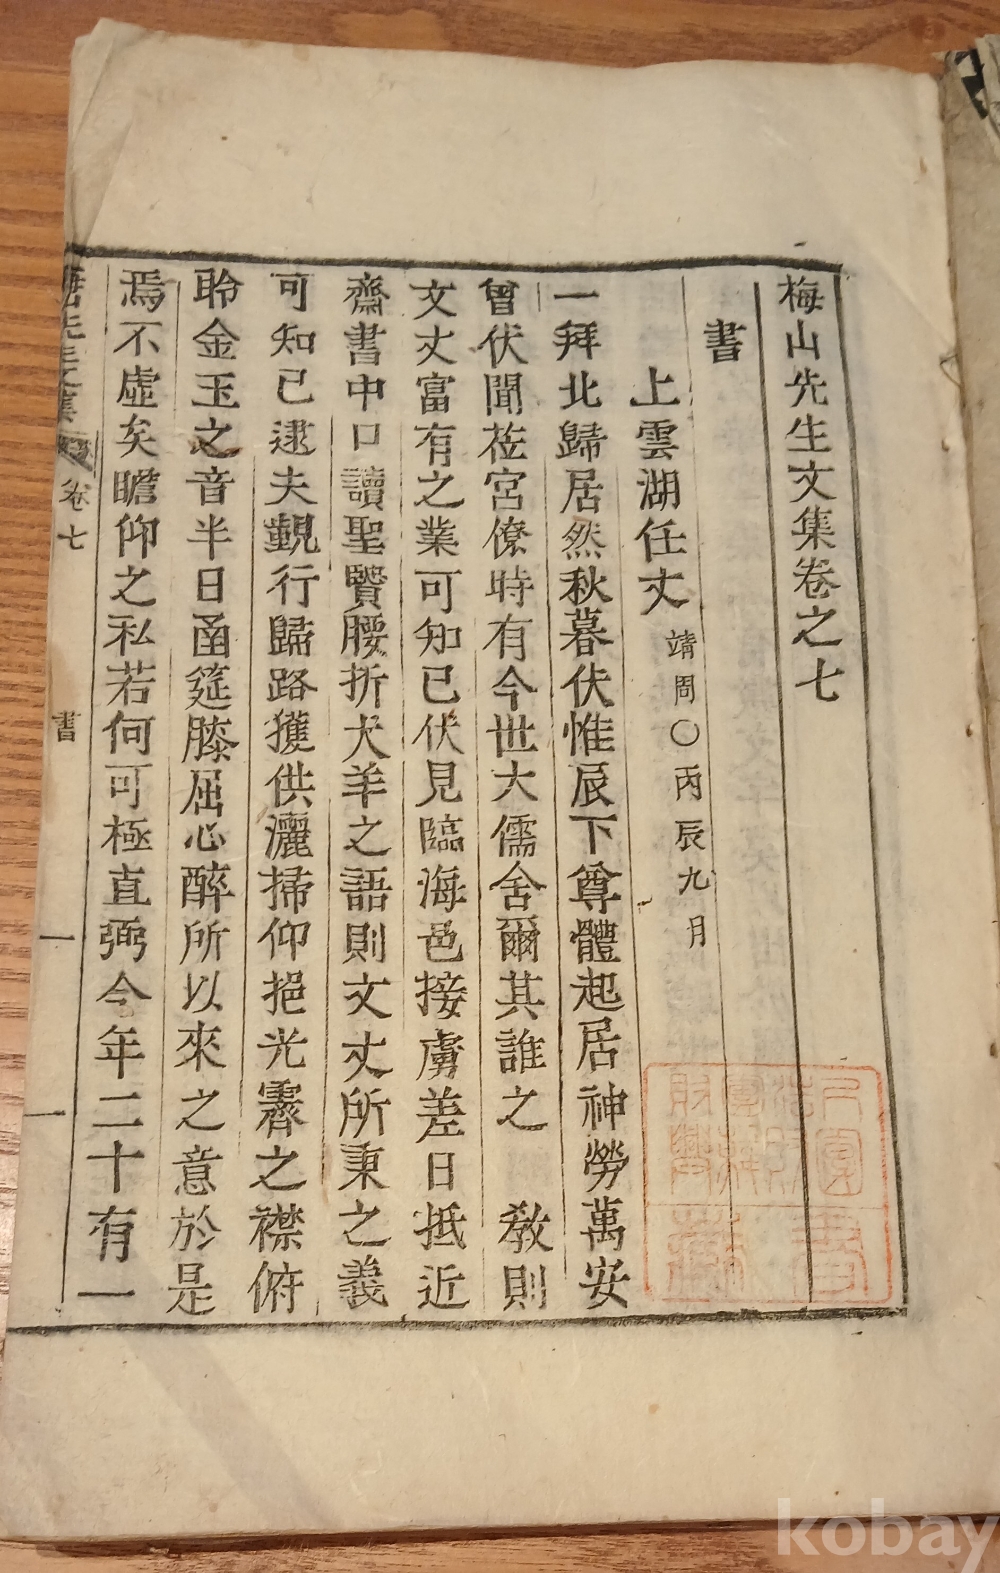 梅山先生文集卷之七
書
上雲湖任丈 靖周〇丙辰九月
一拜北歸居然秋暮伏惟辰下尊體起居神勞萬安
曾伏聞莅宮僚時有今世大儒舍爾其誰之 教則
文丈富有之業可知已伏見臨海邑接虜差日抵近
齋書中口讀聖賢腰折犬羊之語則文丈所秉之義
可知已逮夫覲行歸路獲供灑掃仰挹光霽之襟俯
聆金玉之音半日函筵膝屈心醉所以來之意於是
焉不虛矣瞻仰之私若何可極直弼今年二十有一
先生文集
卷七
書
一
kobay